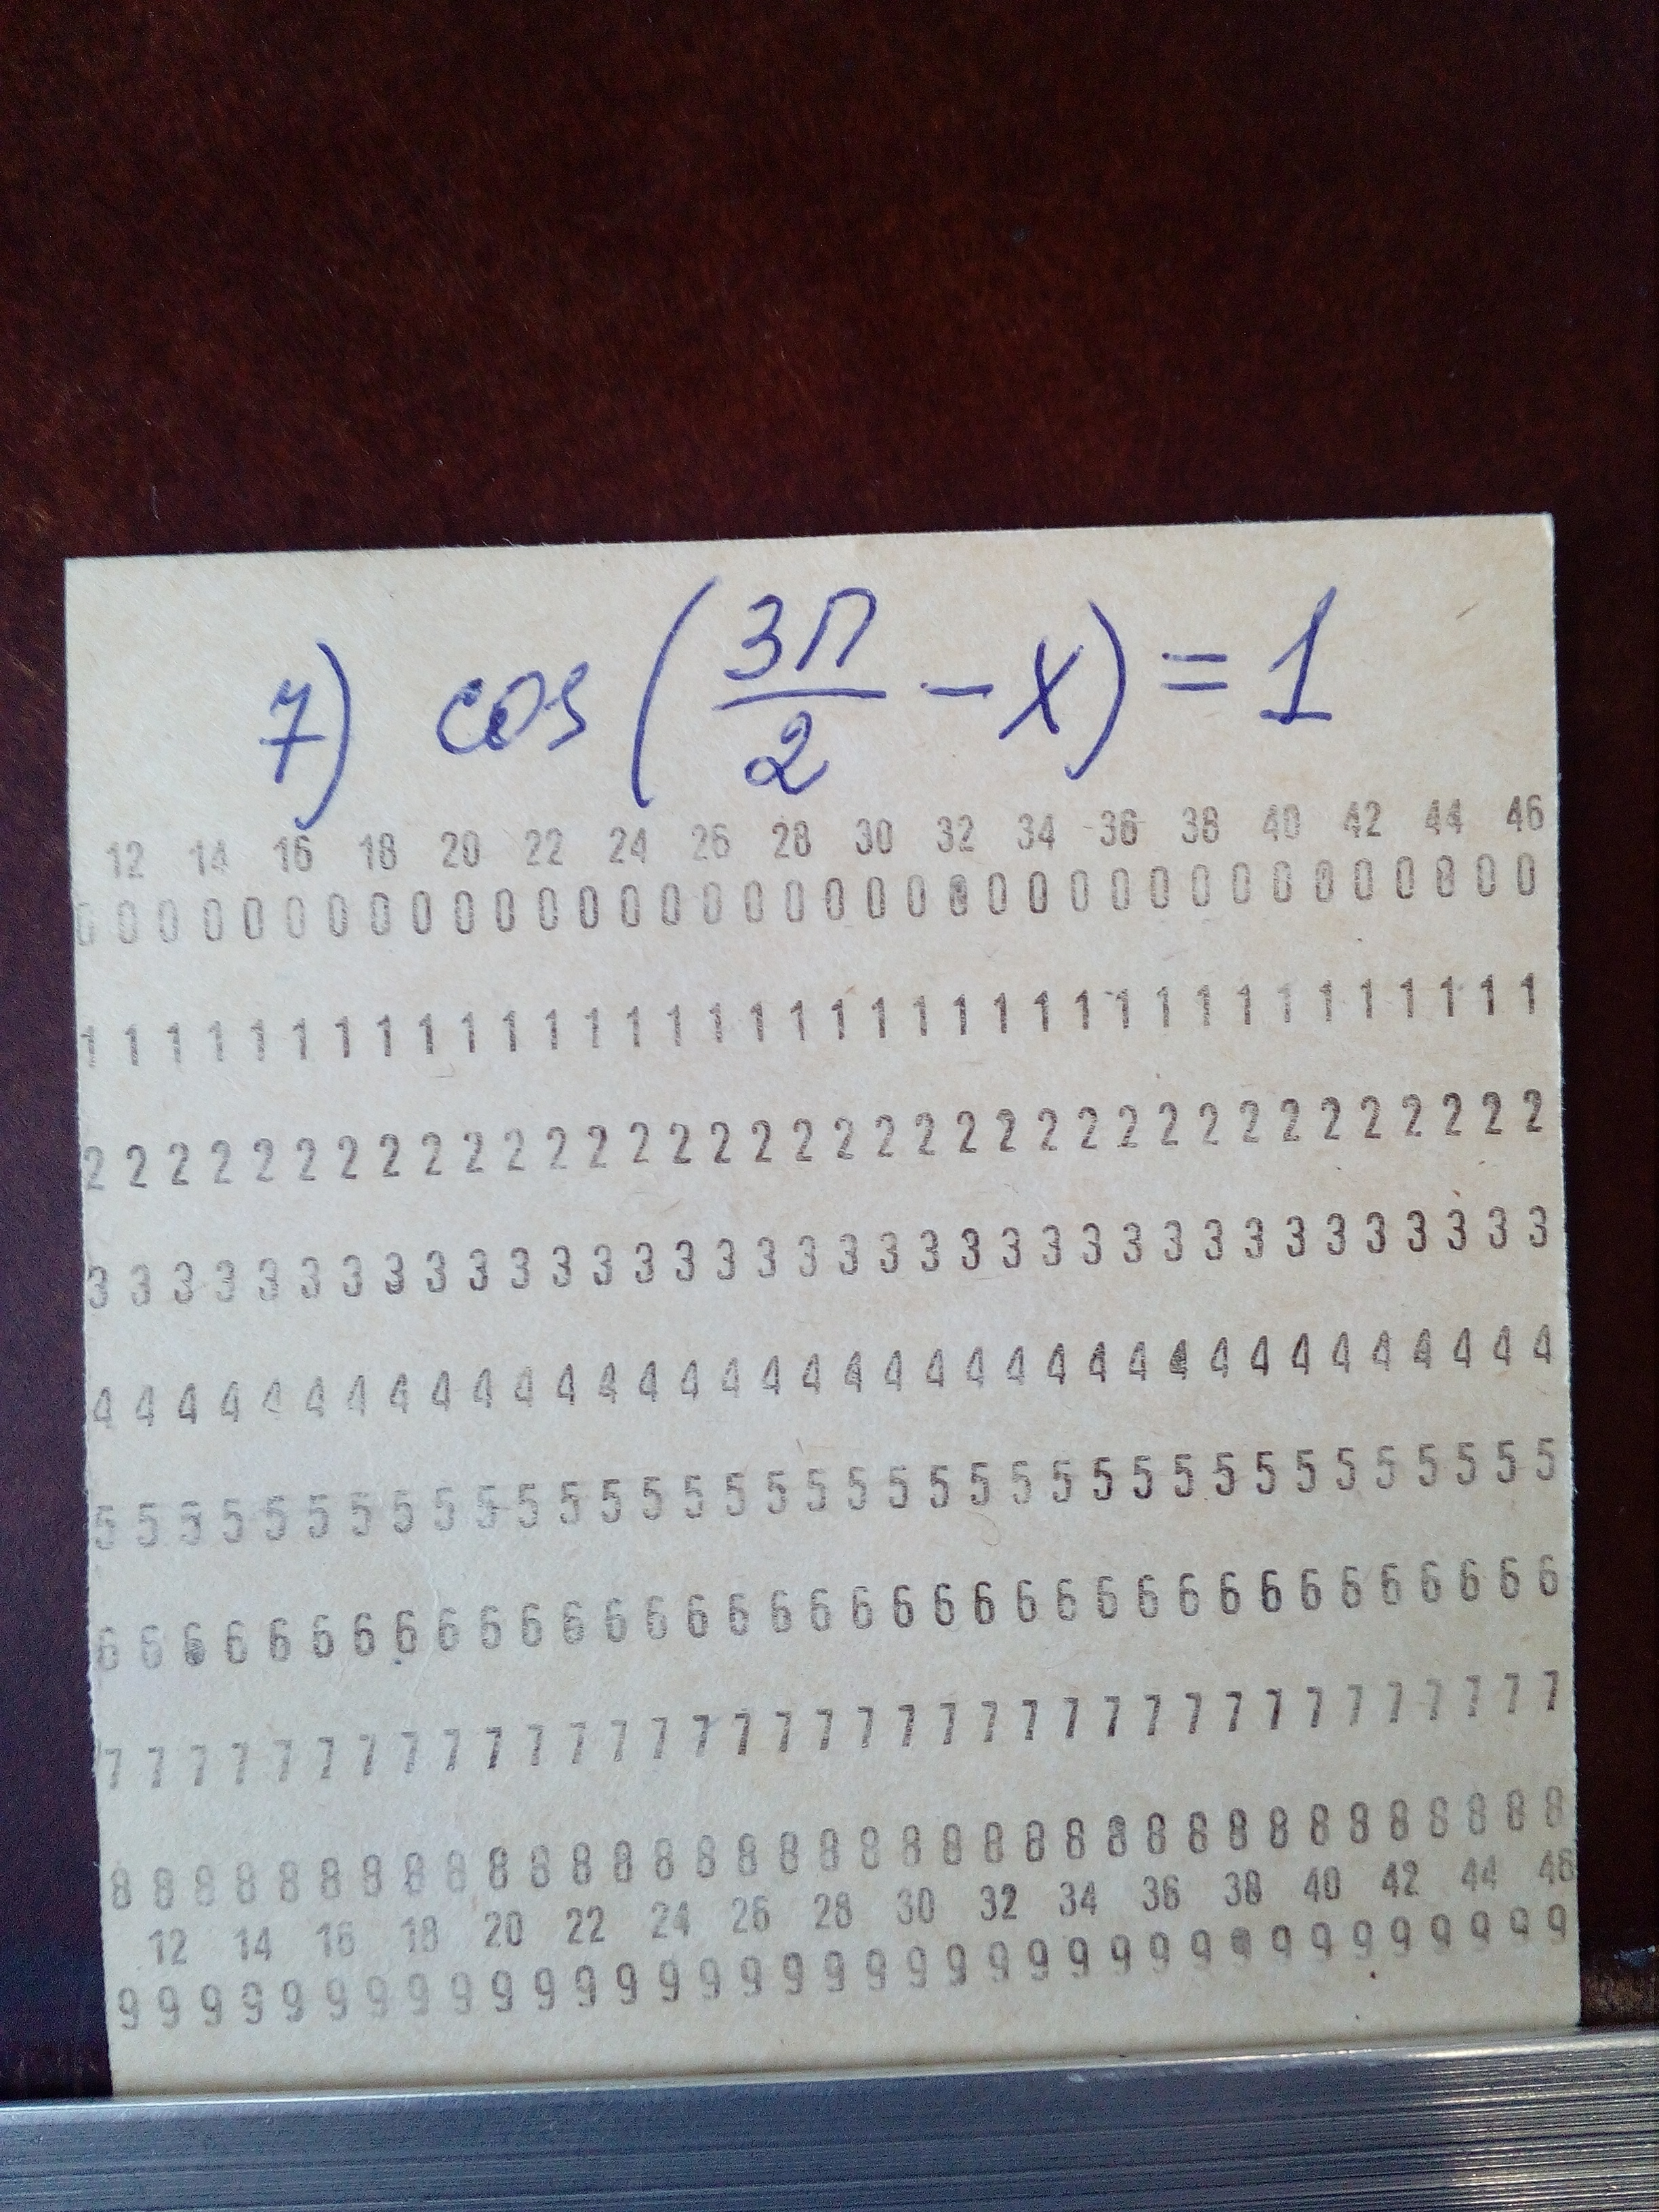 7) cos(3π/2 - x) = 1
12 14 16 18 20 22 24 26 28 30 32 34 36 38 40 42 44 46
0 0 0 0 0 0 0 0 0 0 0 0 0 0 0 0 0 0 0 0 0 0 0 0 0 0 0 0 0 0 0 0 0 0 0 0
1 1 1 1 1 1 1 1 1 1 1 1 1 1 1 1 1 1 1 1 1 1 1 1 1 1 1 1 1 1 1 1 1 1 1 1
2 2 2 2 2 2 2 2 2 2 2 2 2 2 2 2 2 2 2 2 2 2 2 2 2 2 2 2 2 2 2 2 2 2 2 2
3 3 3 3 3 3 3 3 3 3 3 3 3 3 3 3 3 3 3 3 3 3 3 3 3 3 3 3 3 3 3 3 3 3 3 3
4 4 4 4 4 4 4 4 4 4 4 4 4 4 4 4 4 4 4 4 4 4 4 4 4 4 4 4 4 4 4 4 4 4 4 4
5 5 5 5 5 5 5 5 5 5 5 5 5 5 5 5 5 5 5 5 5 5 5 5 5 5 5 5 5 5 5 5 5 5 5 5
6 6 6 6 6 6 6 6 6 6 6 6 6 6 6 6 6 6 6 6 6 6 6 6 6 6 6 6 6 6 6 6 6 6 6 6
7 7 7 7 7 7 7 7 7 7 7 7 7 7 7 7 7 7 7 7 7 7 7 7 7 7 7 7 7 7 7 7 7 7 7 7
8 8 8 8 8 8 8 8 8 8 8 8 8 8 8 8 8 8 8 8 8 8 8 8 8 8 8 8 8 8 8 8 8 8 8 8
12 14 16 18 20 22 24 26 28 30 32 34 36 38 40 42 44 46
9 9 9 9 9 9 9 9 9 9 9 9 9 9 9 9 9 9 9 9 9 9 9 9 9 9 9 9 9 9 9 9 9 9 9 9